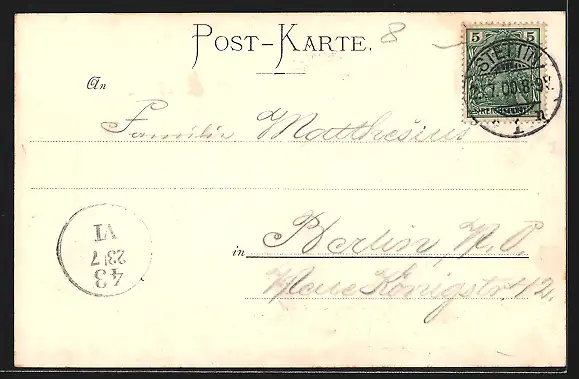 POST-KARTE.
8
5 5
STETTIN
23.7.00.8-9V.
1 n
An
Familie Matthesius
in Berlin, N. O.
Neue Königstr. 42.
43
23/7
VI